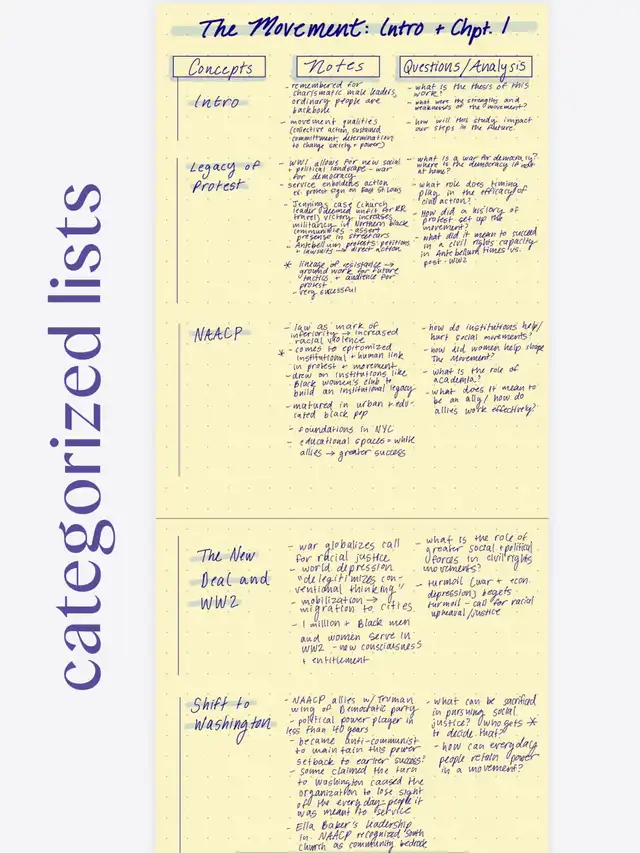 categorized lists
The Movement: Intro + Chpt. 1
Concepts
Notes
Questions/Analysis
Intro
- remembered for
charismatic male leaders,
ordinary people are
backbone
- movement qualities
(collective action, sustained
commitment, determination
to change society + power)
- what is the thesis of this
work?
- what were the strengths and
weaknesses of the movement?
- how will this study impact
our steps in the future?
Legacy of
Protest
- WW1 allows for new social
+ political landscape - war
for democracy
- service emboldens action
ex. protest sign on East St Louis
- Jennings case (church
leader deemed unfit for RR
travel) victory increases
militancy in Northern black
communities - assert
presence in streetcars
- Antebellum protests: petitions
+ lawsuits → direct action
* lineage of resistance →
ground work for future
tactics + audience for
protest
- very successful
- what is a war for democracy?
where is the democracy if not
at home?
- what role does timing
play in the efficacy of
civil action?
- How did a history of
protest set up the
movement?
- what did it mean to succeed
in a civil rights capacity
in Antebellum times vs.
post-WW2
NAACP
- law as mark of
inferiority → increased
racial violence
* - comes to epitomized
institutional + human link
in protest + movement
- drew on institutions like
Black women's club to
build an institutional legacy
- matured in urban + edu-
cated black pop
- foundations in NYC
- educational spaces = white
allies → greater success
- how do institutions help/
hurt social movements?
- how did women help shape
The Movement?
- what is the role of
academia?
- what does it mean to
be an ally/ how do
allies work effectively?
The New
Deal and
WW2
- war globalizes call
for racial justice
- world depression
"delegitimizes con-
ventional thinking"
- mobilization →
migration to cities
- 1 million + Black men
and women serve in
WW2 - new consciousness
+ entitlement
- what is the role of
greater social + political
forces in civil rights
movements?
- turmoil (war + econ.
depression) begets
turmoil - call for racial
upheaval/justice
Shift to
Washington
- NAACP allies w/ Truman
wing of Democratic party
- political power player in
less than 40 years
- became anti-communist
to maintain this power
setback to earlier success?
- some claimed the turn
to Washington caused the
organization to lose sight
of the everyday people it
was meant to service
- Ella Baker's leadership
in NAACP recognized South
church as community bedrock
- what can be sacrificed
in pursuing social
justice? who gets *
to decide that?
- how can everyday
people retain power
in a movement?